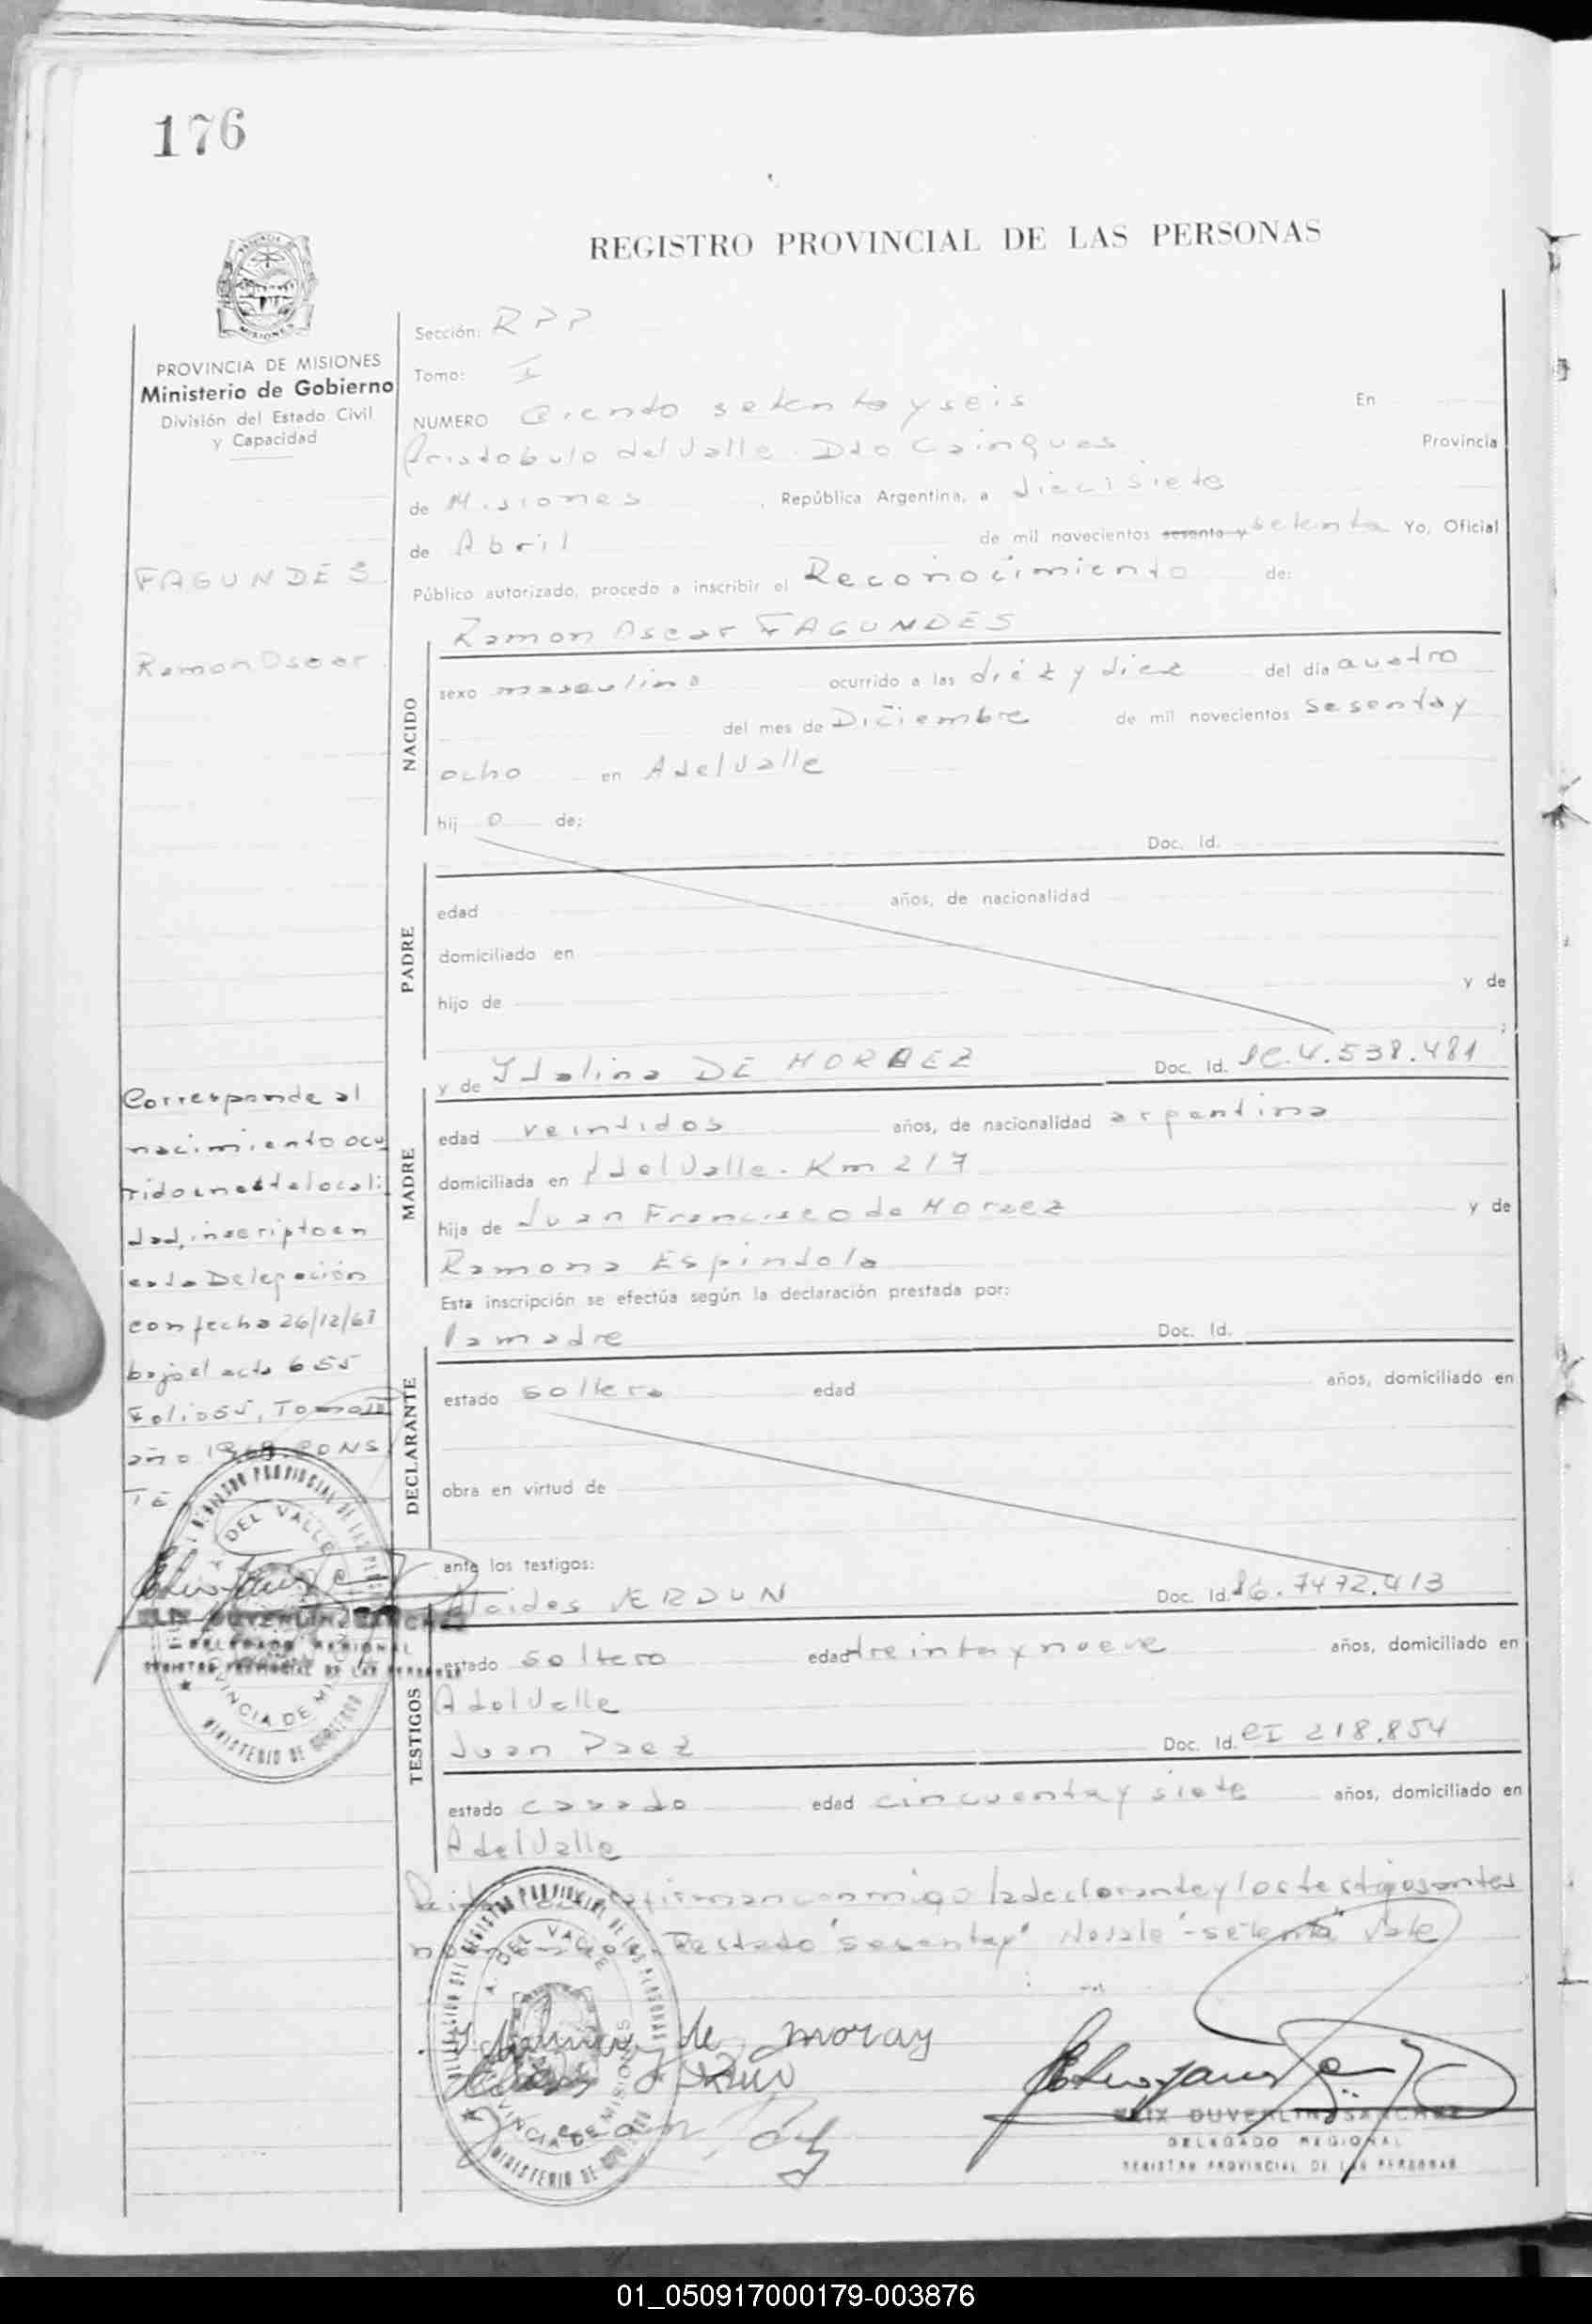 176
REGISTRO PROVINCIAL DE LAS PERSONAS
PROVINCIA DE MISIONES
Ministerio de Gobierno
División del Estado Civil
y Capacidad
FAGUNDES
Ramon Oscar
Corresponde al
nacimiento ocu
rido en esta locali
dad, inscripto en
esta Delegación
con fecha 26/12/68
bajo el acta 655
Folio 55, Tomo III
año 1968. CONS
TE
A. DEL VALLE
DELEGADO REGIONAL
REGISTRO PROVINCIAL DE LAS PERSONAS
PROVINCIA DE MISIONES
MINISTERIO DE GOBIERNO
Sección: RPP
Tomo: I
NUMERO Ciento setenta y seis En
Aristobulo del Valle. Dto Cainguas Provincia
de Misiones, República Argentina, a diecisiete
de Abril de mil novecientos sesenta y setenta Yo, Oficial
Público autorizado, procedo a inscribir el Reconocimiento de:
Ramon Oscar FAGUNDES
NACIDO
sexo masculino ocurrido a las diéz y diez del día cuatro
del mes de Diciembre de mil novecientos sesenta y
ocho en A del Valle
hij o de:
Doc. Id.
PADRE
edad años, de nacionalidad
domiciliado en
hijo de y de
;
y de Idalina DE MORAEZ Doc. Id. LC. 4.538.481
MADRE
edad veintidos años, de nacionalidad argentina
domiciliada en A del Valle. Km 217
hija de Juan Francisco de Moraez y de
Ramona Espindola
Esta inscripción se efectúa según la declaración prestada por:
la madre Doc. Id.
DECLARANTE
estado soltera edad años, domiciliado en
obra en virtud de
ante los testigos:
Alcides VERDUN Doc. Id. 7472.413
TESTIGOS
estado soltero edad treinta y nueve años, domiciliado en
A del Valle
Juan Paez Doc. Id. CI 218.854
estado casado edad cincuenta y siete años, domiciliado en
A del Valle
firman conmigo la declarante y los testigos antes
Testado "sesenta y" No vale "-setenta" Vale
DELEGACION DEL REGISTRO PROVINCIAL DE LAS PERSONAS
A. DEL VALLE
PROVINCIA DE MISIONES
MINISTERIO DE GOBIERNO
de moray
FELIX DUVERLIN SANCHEZ
DELEGADO REGIONAL
REGISTRO PROVINCIAL DE LAS PERSONAS
01_050917000179-003876